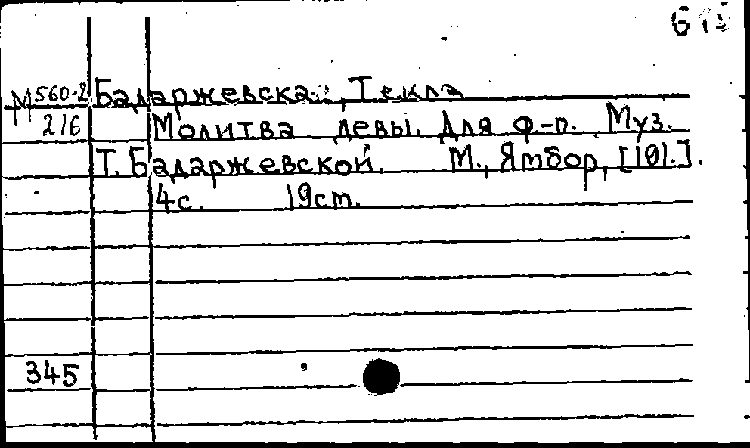 М560-2 Бадаржевская, Текла
216 Молитва девы. Для ф-п. Муз.
Т. Бадаржевской. М., Ямбор, [191.].
4с. 19cm.
345